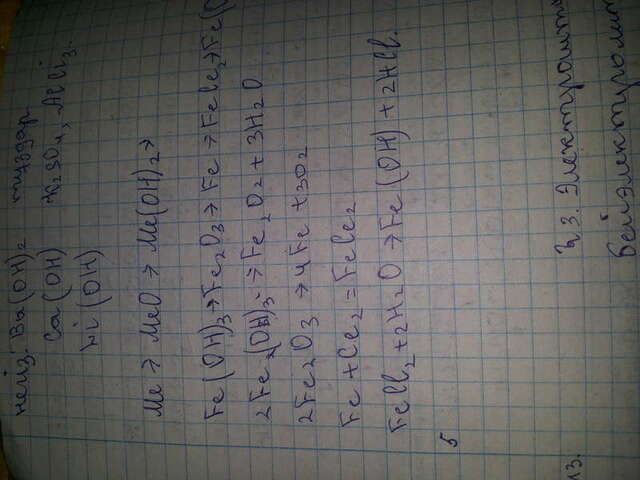 негіз: Ba(OH)2 тұздар
Ca(OH) K2SO4, AlCl3.
Li(OH)
Me → MeO → Me(OH)2 →
Fe(OH)3 → Fe2O3 → Fe → FeCl2 → Fe(O
2Fe2(OH)3 → Fe2O2 + 3H2O
2Fe2O3 → 4Fe + 3O2
Fe + Cl2 = FeCl2
FeCl2 + 2H2O → Fe(OH) + 2HCl.
5
23. Электролит
бейэлектролит
13.